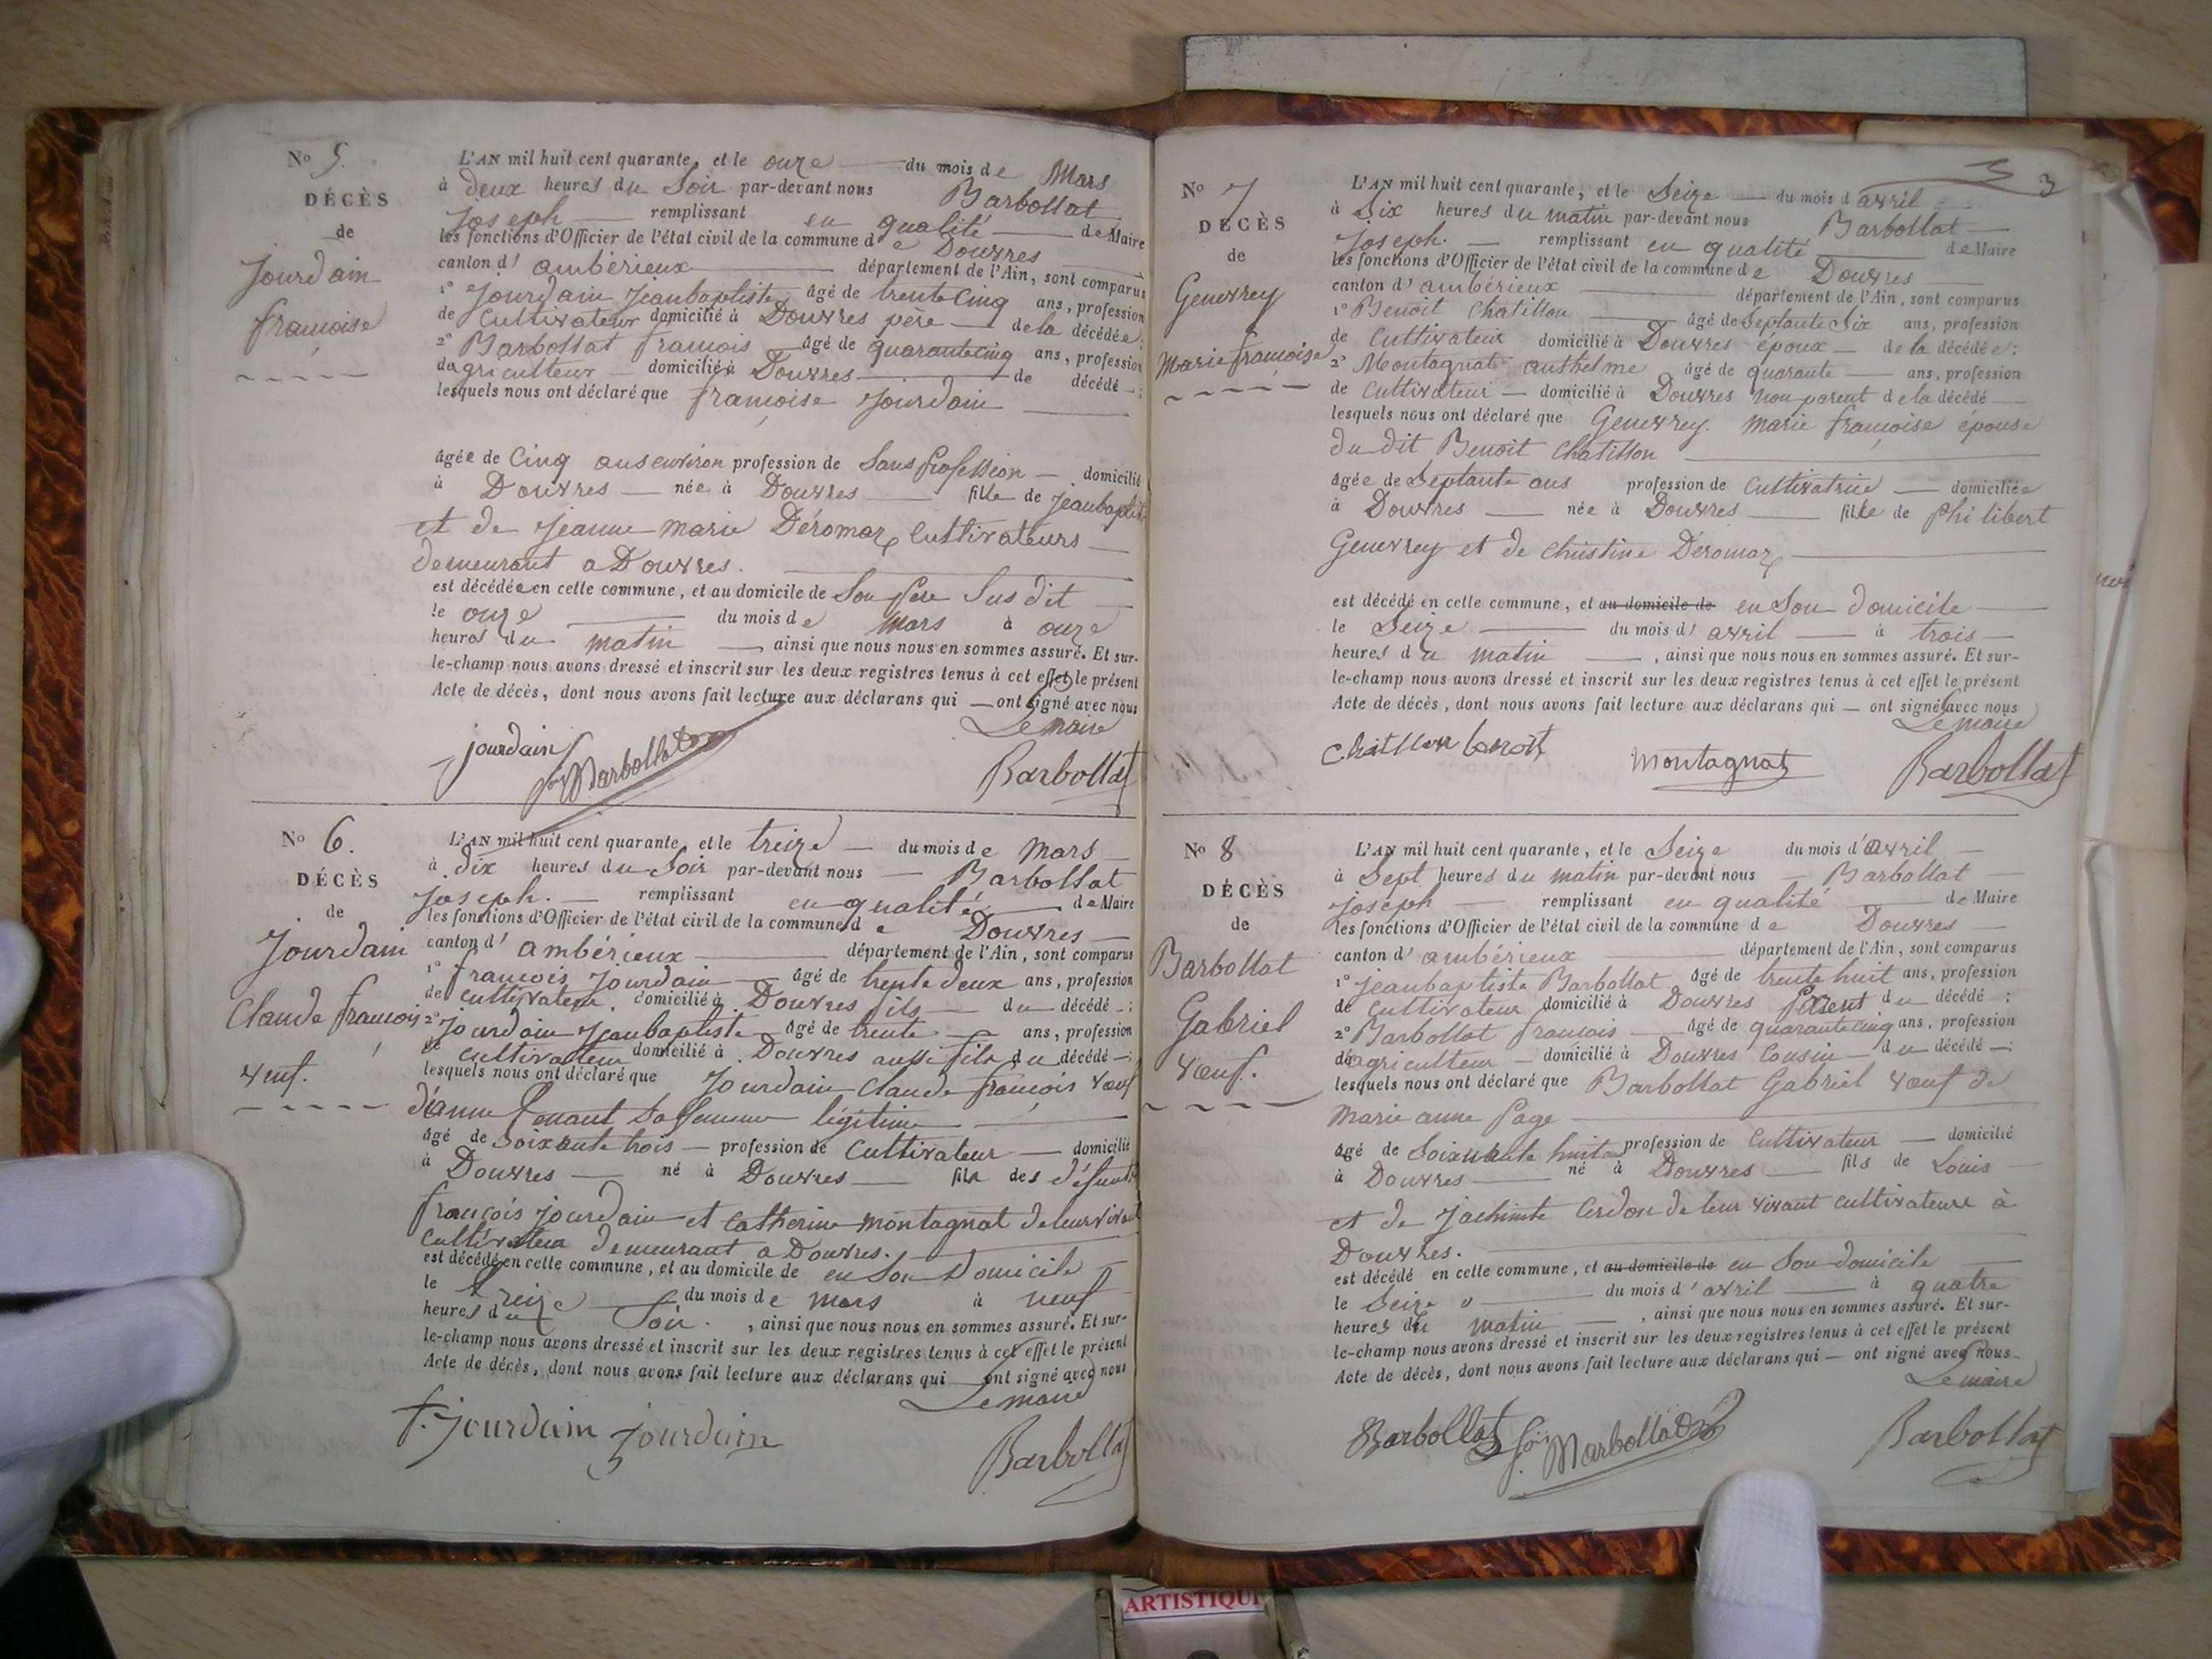 No 5.
DÉCÈS
de
Jourdain
françoise
L'AN mil huit cent quarante, et le onze du mois de Mars
à deux heures du Soir par-devant nous Barbollat
Joseph remplissant en qualité de Maire
les fonctions d'Officier de l'état civil de la commune de Douvres
canton d'ambérieux département de l'Ain, sont comparus
1° Jourdain Jeanbaptiste âgé de trente Cinq ans, profession
de Cultivateur domicilié à Douvres père de la décédée;
2° Barbollat françois âgé de quarantecinq ans, profession
dagriculteur domicilié à Douvres de décédé;
lesquels nous ont déclaré que françoise Jourdain
âgée de Cinq ans environ profession de Sans profession domicilié
à Douvres née à Douvres fille de Jeanbaptiste
et de Jeanne Marie Déromaz Cultivateurs
demeurant a Douvres.
est décédée en cette commune, et au domicile de Son père Sus dit
le onze du mois de Mars à onze
heures du matin, ainsi que nous nous en sommes assuré. Et sur-
le-champ nous avons dressé et inscrit sur les deux registres tenus à cet effet le présent
Acte de décès, dont nous avons fait lecture aux déclarans qui ont signé avec nous
Le maire
jourdain Barbollat Barbollat
No 6.
DÉCÈS
de
Jourdain
Claude françois
veuf.
L'AN mil huit cent quarante, et le treize du mois de Mars
à dix heures du Soir par-devant nous Barbollat
Joseph. remplissant en qualité de Maire
les fonctions d'Officier de l'état civil de la commune de Douvres
canton d'ambérieux département de l'Ain, sont comparus
1° françois Jourdain âgé de trente deux ans, profession
de cultivateur, domicilié à Douvres fils du décédé;
2° Jourdain Jeanbaptiste âgé de trente ans, profession
de cultivateur domicilié à Douvres aussi fils du décédé;
lesquels nous ont déclaré que Jourdain Claude françois veuf
d'anne sa femme légitime
âgé de Soixante trois profession de Cultivateur domicilié
à Douvres né à Douvres fils des défunts
françois jourdain et Catherine Montagnat de leur vivant
cultivateur demeurant a Douvres.
est décédé en cette commune, et au domicile de en Son Domicile
le treize du mois de mars à neuf
heures du Soir., ainsi que nous nous en sommes assuré. Et sur-
le-champ nous avons dressé et inscrit sur les deux registres tenus à cet effet le présent
Acte de décès, dont nous avons fait lecture aux déclarans qui ont signé avec nous
Le maire
f. jourdain jourdain Barbollat
3 3
No 7
DÉCÈS
de
Genevrey
Marie françoise
L'AN mil huit cent quarante, et le Seize du mois d'avril
à Six heures du matin par-devant nous Barbollat
joseph. remplissant en qualité de Maire
les fonctions d'Officier de l'état civil de la commune de Douvres
canton d'ambérieux département de l'Ain, sont comparus
1° Benoit Chatillon âgé de Septante Six ans, profession
de Cultivateur domicilié à Douvres époux de la décédée;
2° Montagnat anthelme âgé de quarante ans, profession
de Cultivateur domicilié à Douvres non parent de la décédé
lesquels nous ont déclaré que Genevrey. Marie françoise épouse
du dit Benoit Chatillon
âgée de Septante ans profession de Cultivatrice domiciliée
à Douvres née à Douvres fille de philibert
Genevrey et de Christine Déromaz
est décédé en cette commune, et au domicile de en Son Domicile
le Seize du mois d'avril à trois
heures du matin, ainsi que nous nous en sommes assuré. Et sur-
le-champ nous avons dressé et inscrit sur les deux registres tenus à cet effet le présent
Acte de décès, dont nous avons fait lecture aux déclarans qui ont signé avec nous
Le maire
Chatillon benoit montagnat Barbollat
No 8
DÉCÈS
de
Barbollat
Gabriel
Veuf.
L'AN mil huit cent quarante, et le Seize du mois d'avril
à Sept heures du matin par-devant nous Barbollat
joseph remplissant en qualité de Maire
les fonctions d'Officier de l'état civil de la commune de Douvres
canton d'ambérieux département de l'Ain, sont comparus
1° jeanbaptiste Barbollat âgé de trente huit ans, profession
de Cultivateur domicilié à Douvres parent du décédé;
2° Barbollat françois âgé de quarantecinq ans, profession
dagriculteur domicilié à Douvres Cousin du décédé;
lesquels nous ont déclaré que Barbollat Gabriel veuf de
Marie anne Page
âgé de Soixante huit profession de Cultivateur domicilié
à Douvres né à Douvres fils de Louis
et de Jachinte Cerdon de leur vivant cultivateurs à
Douvres.
est décédé en cette commune, et au domicile de en Son domicile
le Seize du mois d'avril à quatre
heures du matin, ainsi que nous nous en sommes assuré. Et sur-
le-champ nous avons dressé et inscrit sur les deux registres tenus à cet effet le présent
Acte de décès, dont nous avons fait lecture aux déclarans qui ont signé avec nous
Le maire
Barbollat Barbollat Barbollat
ARTISTIQU